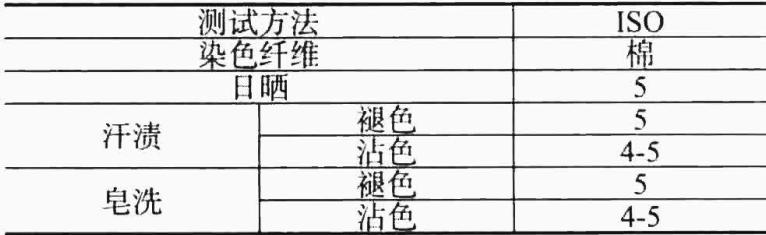 测试方法 ISO
染色纤维 棉
日晒 5
汗渍 褪色 5
沾色 4-5
皂洗 褪色 5
沾色 4-5